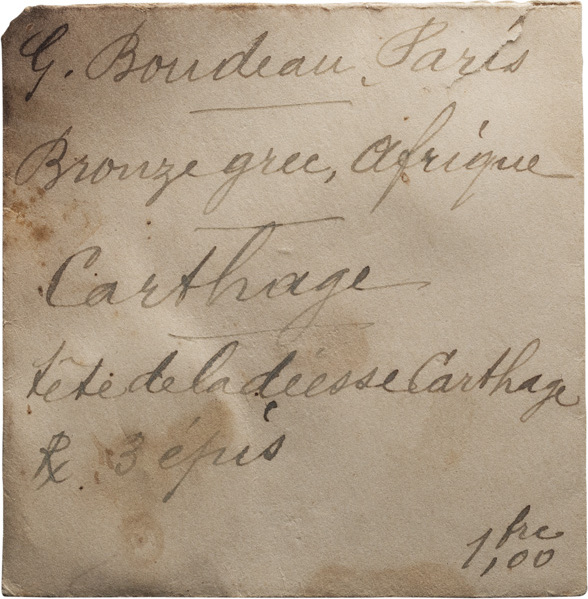 G. Boudeau, Paris
Bronze grec, Afrique
Carthage
tête de la déesse Carthage
℞. 3 épis
1,00 frc